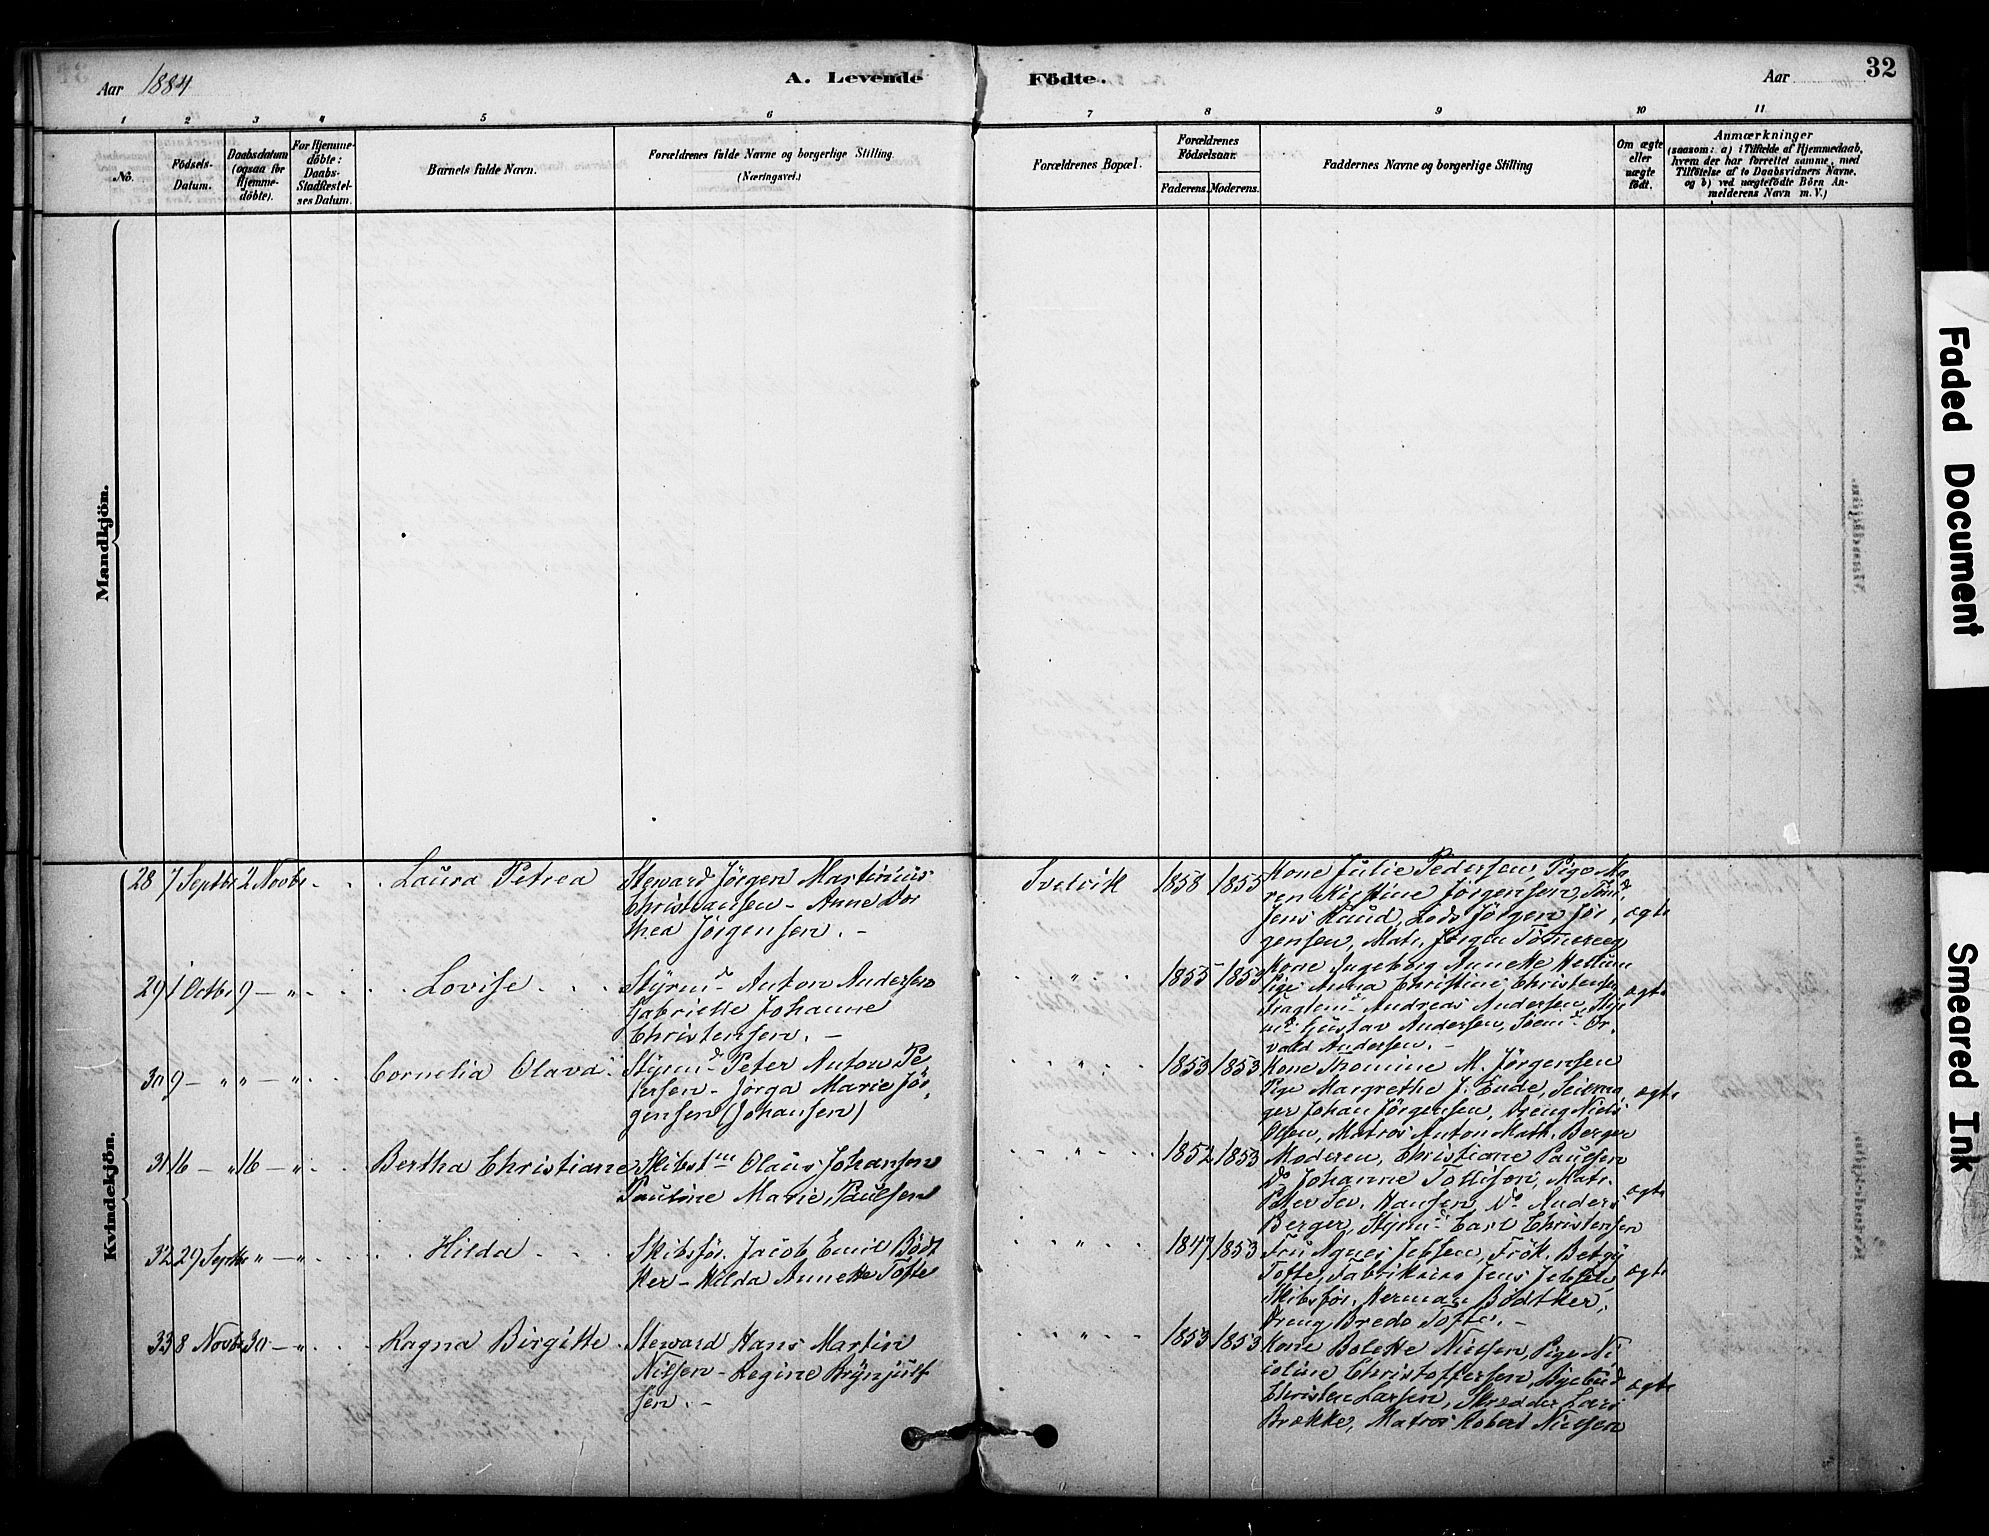 Aar 1884
A. Levende Födte.
Aar
32
1 2 3 4 5 6 7 8 9 10 11
No.
Födsels-
Datum.
Daabsdatum
(ogsaa for
Hjemme-
döbte).
For Hjemme-
döbte:
Daabs-
Stadfæstel-
ses Datum.
Barnets fulde Navn.
Forældrenes fulde Navne og borgerlige Stilling.
(Næringsvei.)
Forældrenes Bopæl.
Forældrenes
Födselsaar.
Faderens. Moderens.
Faddernes Navne og borgerlige Stilling
Om ægte
eller
uægte
födt.
Anmærkninger
(saasom: a) i Tilfælde af Hjemmedaab,
hvem der har forrettet samme, med
Tilföielse af to Daabsvidners Navne,
og b) ved uægtefödte Börn An-
melderens Navn m. V.)
Mandkjön.
Kvindekjön.
28 7 Septbr 2 Novbr. Laura Petrea
Steward Jörgen Martinius
Christiansen - Anne Dor
thea Jörgensen. -
Svelvik 1858 1855
Kone Julie Pedersen, Pige Ma-
ren Kirstine Jörgensen, Tömd
Jens Ruud, Lods Jörgen Jör
gensen, Matr. Jörgen
ægte
29 1 Octbr 9 - " - Lovise
Styrmd Anton Andersen
Gabrielle Johanne
Christensen. -
" 1855 1853
Kone Ingeborg Annette
Pige Anna Christine Christensen
Andreas Andersen, Styr
md Gustav Andersen, Or-
vald Andersen. -
ægte
30 9 - " " - " Cornelia Olava
Styrmd Peter Anton Pe
tersen - Jörga Marie Jör
gensen (Johansen)
" 1853 1853
Kone Thomine M. Jörgensen
Pige Margrethe J. Ende, Seilma
ger Johan Jörgensen, Dreng Niels
Olsen, Matros Anton Math. Berger
ægte
31 16 - " 16 - " Bertha Christiane
Skibstm Olaus Johansen
Pauline Marie Paulsen
" 1852 1853
Moderen, Christiane Paulsen
Do Johanne Tollisen, Matr.
Peter Sev. Hansen, Do Anders
Berger, Styrmd Carl Christensen
ægte
32 29 Septbr " - " Hilda
Skibsför. Jacob Emil Bödt
ker - Hilda Annette Tofte
" 1847 1853
Fru Agnes Jebsen, Frök. Betzy
Tofte, Jens Jebsen,
Skibsför. Herman Bödtker,
Dreng Bredo Tofte. -
ægte
33 8 Novbr 30 - " Ragna Birgitte
Steward Hans Martin
Nilsen - Regine Brynjulf
sen. -
" 1853 1853
Kone Bolette Nielsen, Pige Ni
coline Christoffersen,
Christen Larsen, Skrædder Lars
Brække, Matros Robert Nielsen
ægte
Faded Document
Smeared Ink